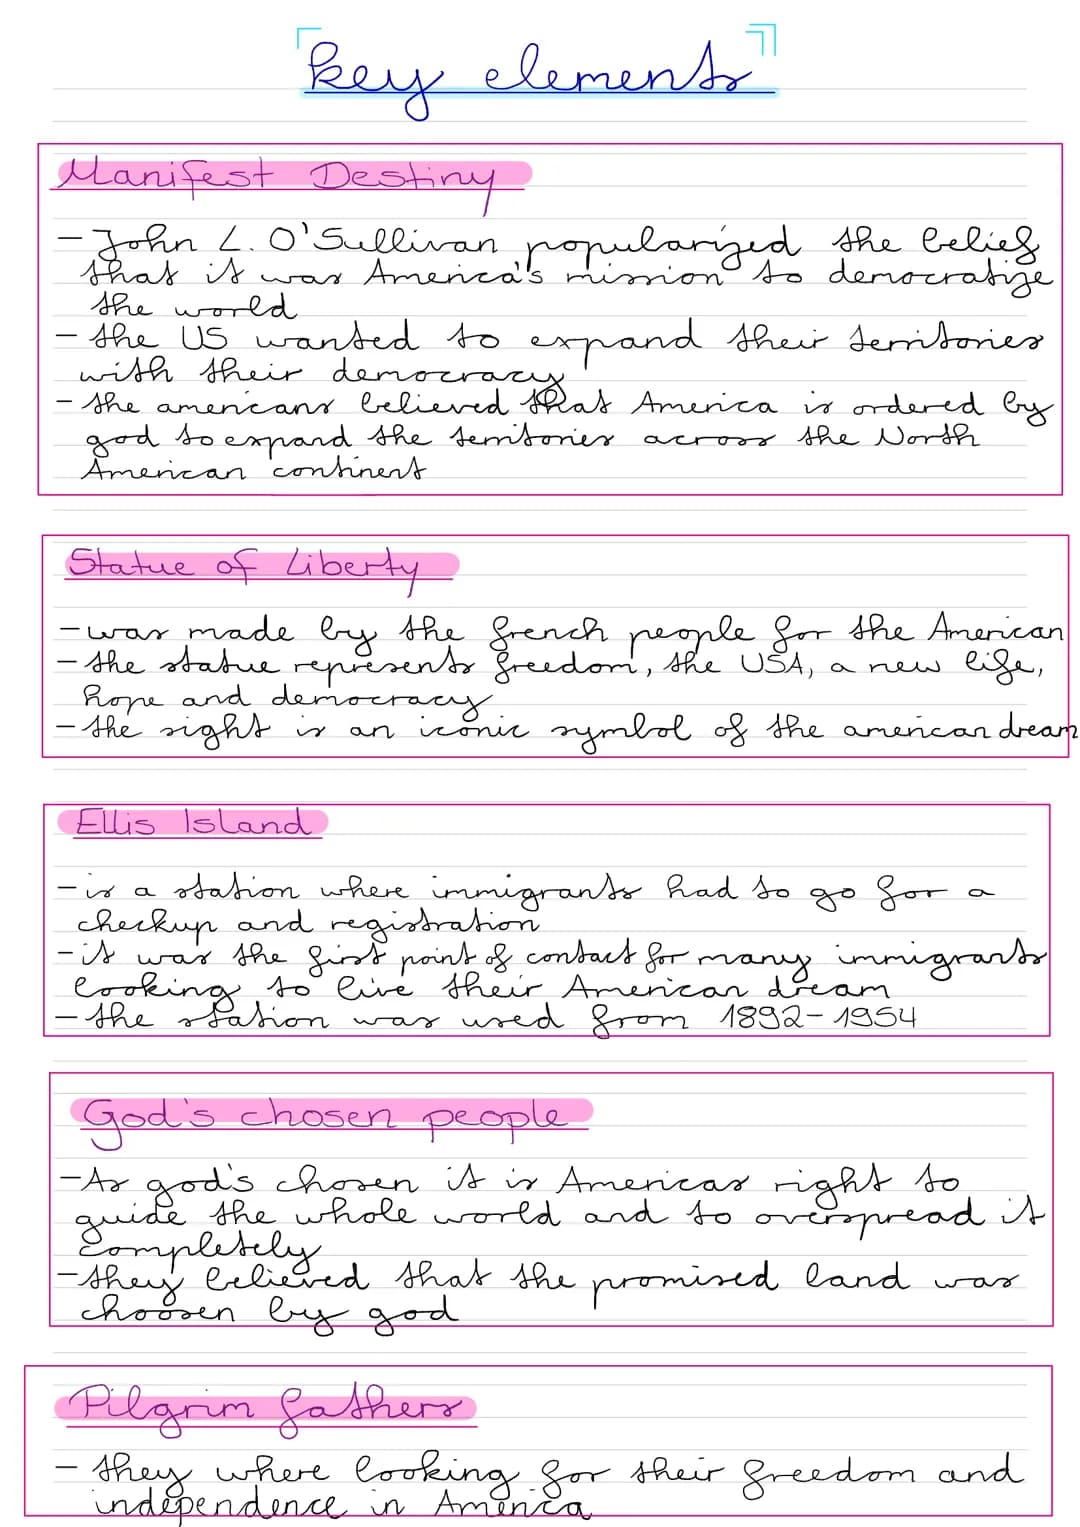 key elements
Manifest Destiny
- John L. O'Sullivan popularized the belief
that it was America's mission to democratize
the world
- the US wanted to expand their territories
with their democracy
- the americans believed that America is ordered by
god to expand the territories across the North
American continent
Statue of Liberty
- was made by the french people for the American
- the statue represents freedom, the USA, a new life,
hope and democracy
- the sight is an iconic symbol of the american dream
Ellis Island
- is a station where immigrants had to go for a
checkup and registration
- it was the first point of contact for many immigrants
looking to live their American dream
- the station was used from 1892-1954
God's chosen people
- As god's chosen it is Americas right to
guide the whole world and to overspread it
completely
- they believed that the promised land was
choosen by god
Pilgrim fathers
- they where looking for their freedom and
independence in America